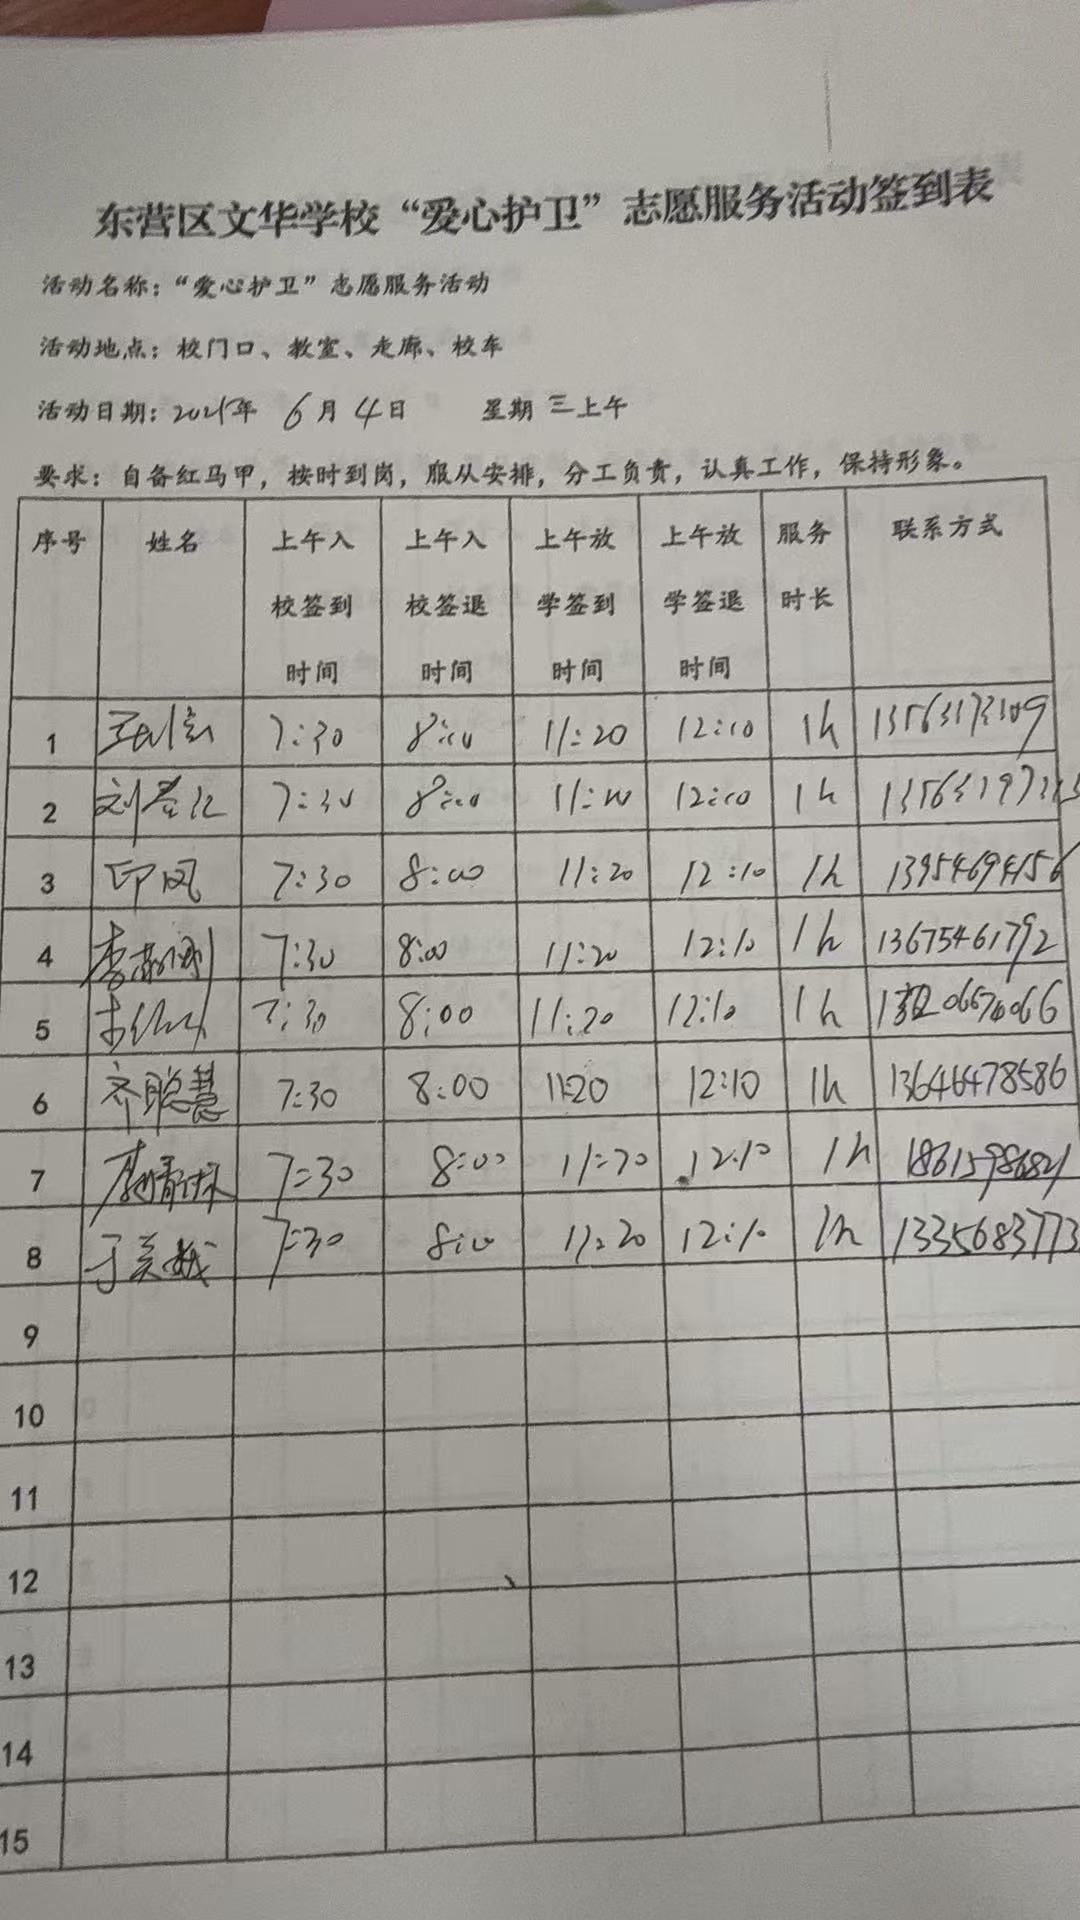 东营区文华学校“爱心护卫”志愿服务活动签到表
活动名称：“爱心护卫”志愿服务活动
活动地点：校门口、教室、走廊、校车
活动日期：2025年 6月4日 星期三上午
要求：自备红马甲，按时到岗，服从安排，分工负责，认真工作，保持形象。
序号 姓名 上午入校签到时间 上午入校签退时间 上午放学签到时间 上午放学签退时间 服务时长 联系方式
1 7:30 8:00 11:20 12:10 1h
2 刘 7:30 8:00 11:20 12:10 1h
3 印凤 7:30 8:00 11:20 12:10 1h 13954694156
4 李 7:30 8:00 11:20 12:10 1h 13675461792
5 7:30 8:00 11:20 12:10 1h
6 齐聪慧 7:30 8:00 11:20 12:10 1h 13646478586
7 7:30 8:00 11:20 12:10 1h 18615986821
8 于美娥 7:30 8:00 11:20 12:10 1h 1335683773
9
10
11
12
13
14
15